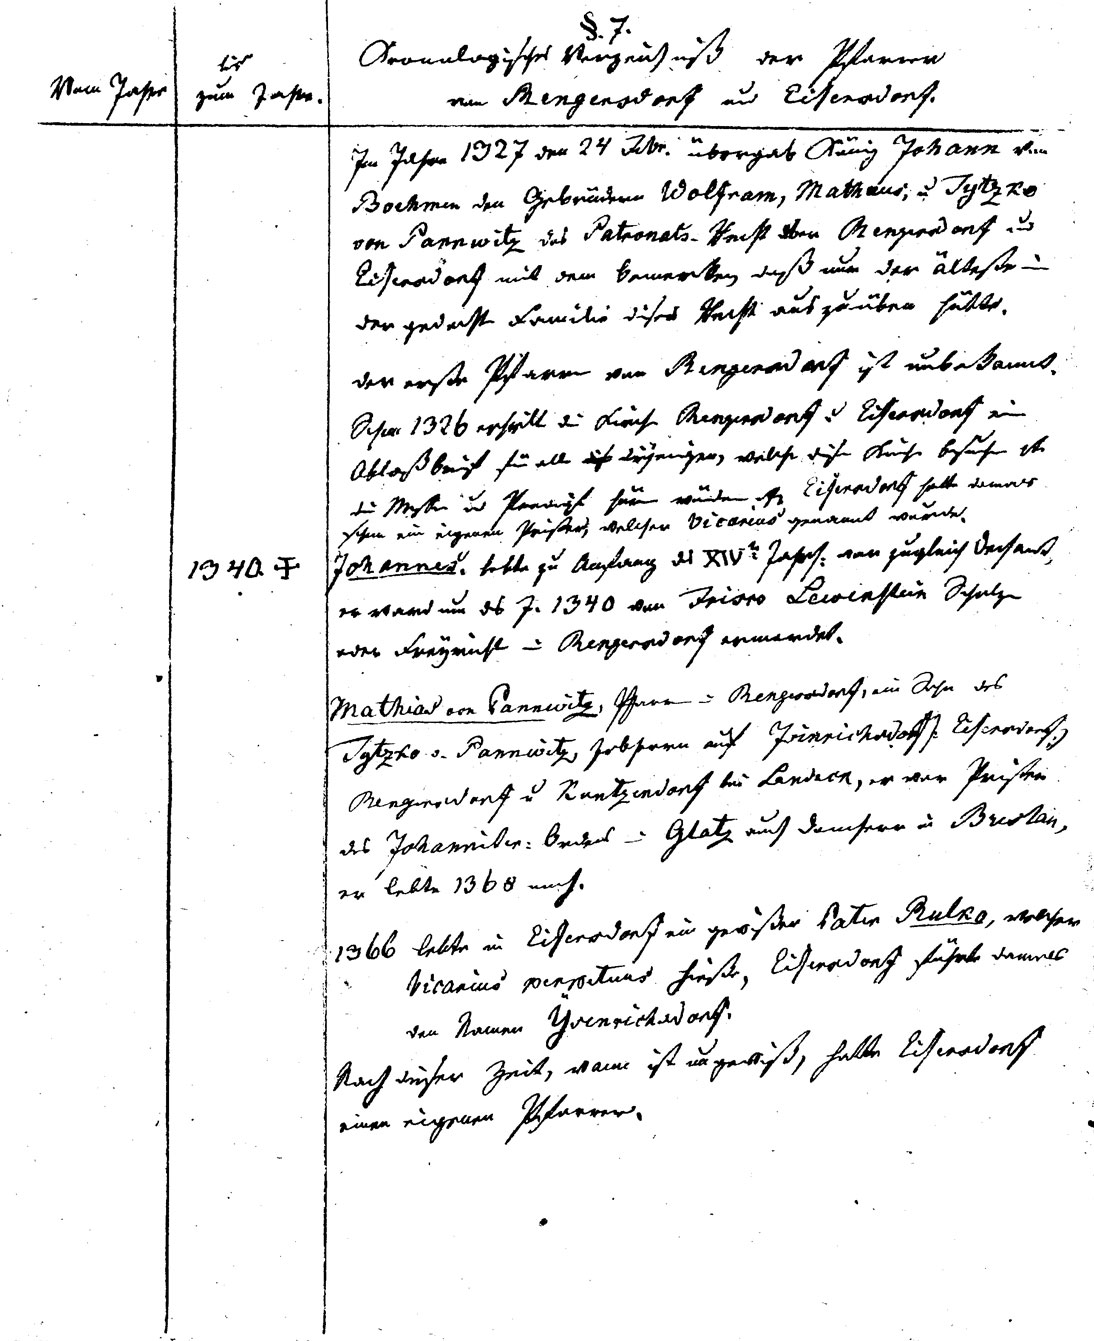 §. 7.
Vom Jahre
bis
zum Jahre.
Cronologisches Verzeichniß der Pfarrer
von Rengersdorf und Eisersdorf.
Im Jahre 1327 den 24 Febr. übergab König Johann von
Boehmen den Gebrüdern Wolfram, Mathaeus, u Tytzko
von Pannwitz das Patronats-Recht über Rengersdorf und
Eisersdorf mit dem bemerken, daß nur der älteste in
der gedacht Familie dieses Recht auszuüben hätte.
der erste Pfarrer von Rengersdorf ist unbekannt.
Schon 1326 erhielt die Kirche Rengersdorf u Eisersdorf ein
Ablaßbrief für alle diejenigen, welche diese Kirche besuchen
die Messe und Predigt hören würden Eisersdorf hatte damals
schon ein eigenen Priester, welcher Vicarius genannt wurde.
1340. ✝
Johannes. lebte zu Anfang des XIV Jahrh: war zugleich Dechant,
er ward um das J. 1340 von Lewinstein Scholze
oder Freyricht in Rengersdorf ermordet.
Mathias von Pannwitz, Pfarrer in Rengersdorf, ein Sohn des
Tytzko v. Pannwitz, Erbherrn auf Heinrichsdorf /: Eisersdorf:/
Rengersdorf u Kuntzendorf bei Landeck, er war Priester
des Johanniter-Ordens in Glatz auch Domherr in Breslau,
er lebte 1368 noch.
1366 lebte in Eisersdorf ein gewißer Pater Rulko, welcher
Vicarius perpetuus hieße, Eisersdorf führte damals
den Namen Heinrichsdorf.
Nach dieser Zeit, wann ist ungewiß, hatte Eisersdorf
einen eigenen Pfarrer.